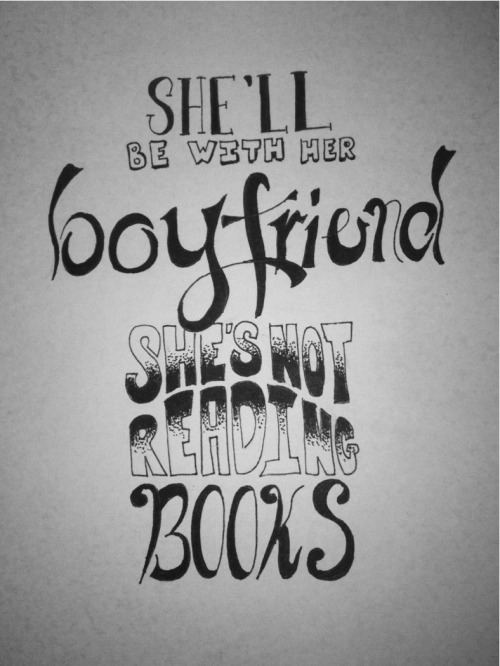 SHE'LL
BE WITH HER
boyfriend
SHE'S NOT
READING
BOOKS